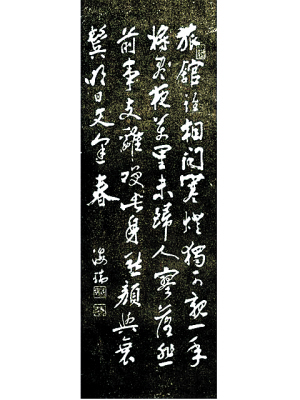 旅館誰相問寒燈獨可親一年
將盡夜萬里未歸人寥落悲
前事支離笑此身愁顏與衰
鬢明日又逢春
海瑞